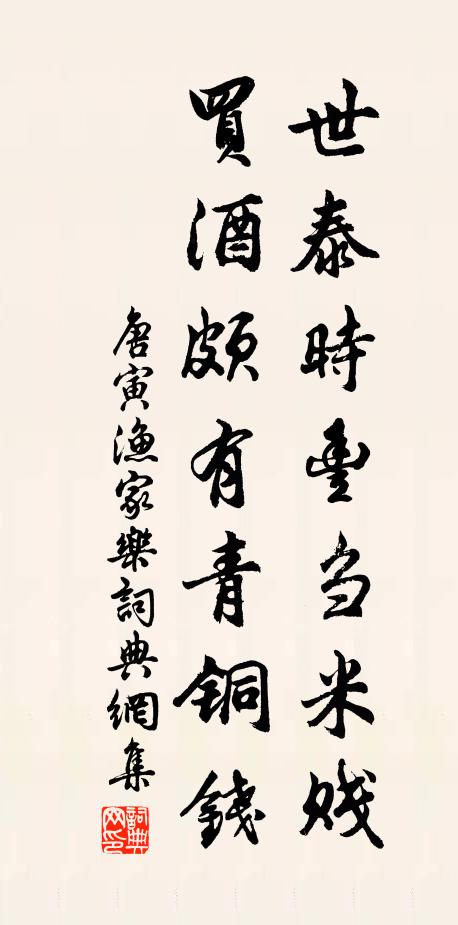 世泰時豐刍米賤
買酒頗有青銅錢
唐寅漁家樂詞典網集
詞典网印